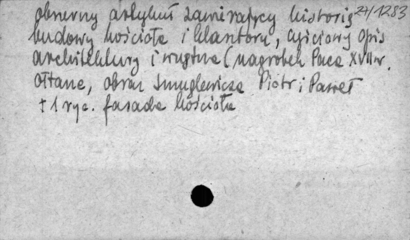 obszerny artykuł zawierający historię 24/1283
budowy kościoła i klasztoru, częściowy opis
architektury i wnętrza (nagrobek Paca XVII w.
ołtarze, obraz Smuglewicza Piotr i Paweł
+ 1 ryc. fasada kościoła